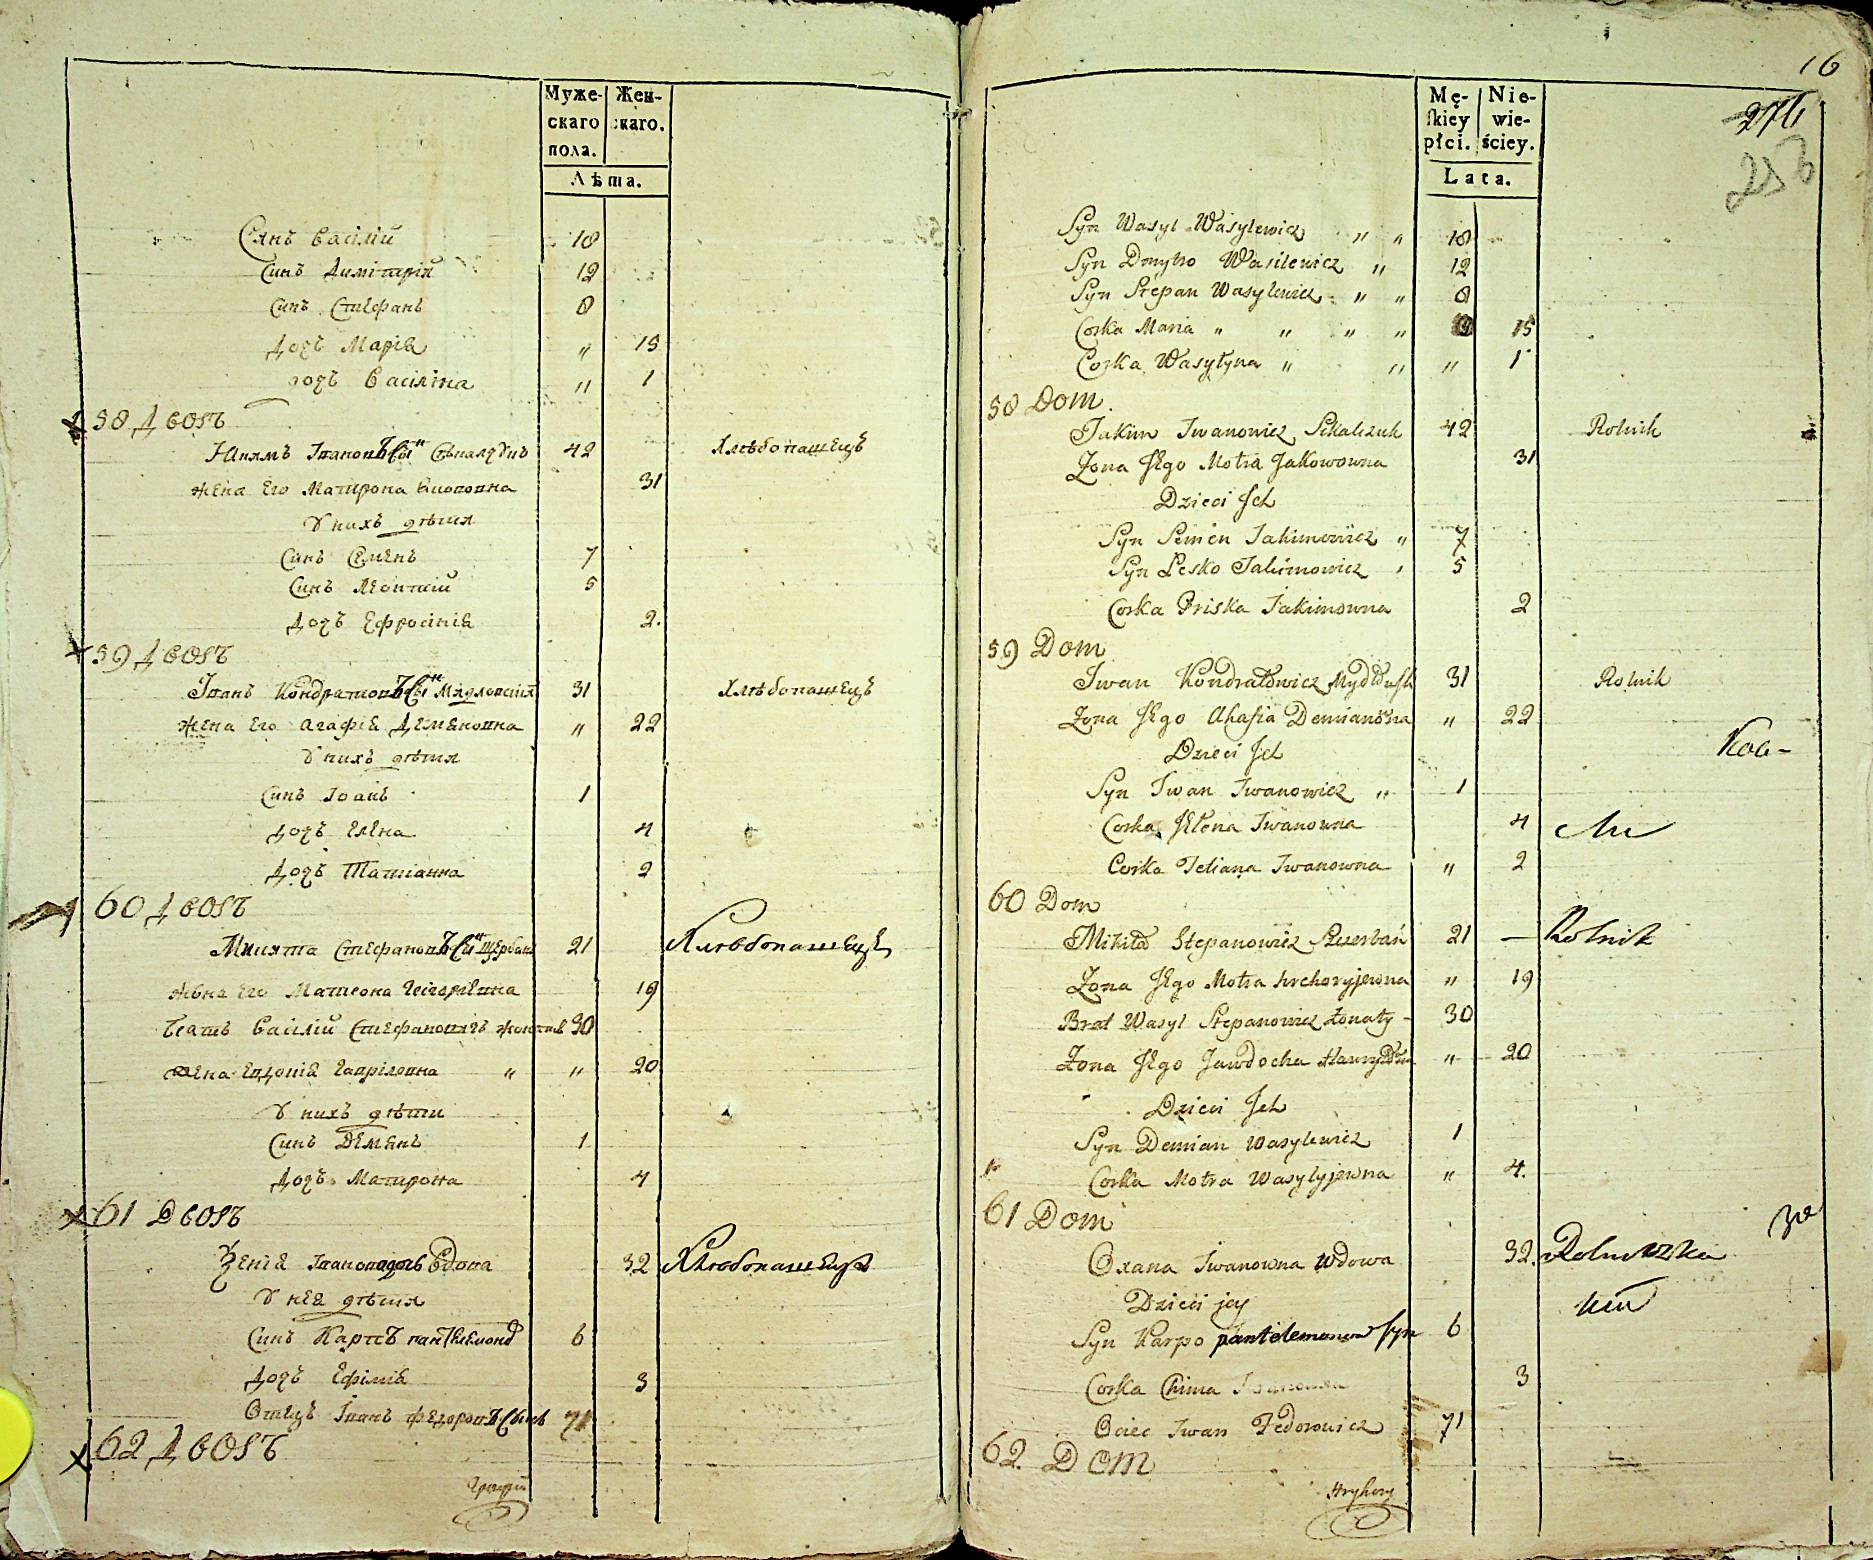 Муже-
скаго
пола.
Жен-
скаго.
Лѣта.
Синъ Василій 18
Синъ Димитрій 12
Синъ Стефанъ 8
Дочь Марія „ 15
дочь Василина „ 1
58 Дворъ
Якимъ Ивановъ Сынъ 42 Хлѣбопашецъ
Жена Его Матрона 31
У нихъ дѣти
Синъ Семенъ 7
Синъ Леонтій 5
Дочь Ефросинія 2.
59 Дворъ
Іванъ Кондратовъ Сынъ 31 Хлѣбопашецъ
Жена Его Агафія Демяновна „ 22
У нихъ дѣти
Синъ Іоанъ 1
дочь Елена 4
Дочь Татіанна 2
60 Дворъ
Микита Стефановъ Сынъ Щербань 21 Хлѣбопашецъ
Жена Его Матрона Григоріевна 19
Братъ Василій Стефановичъ 30
Жена Евдокія Гавріловна „ „ 20
У нихъ дѣти
Синъ Демянъ 1
Дочь Матрона 4
61 Дворъ
Ксенія Іванова дочь Вдова 32 Хлѣбопашецъ
У нея дѣти
Синъ Карпъ 6
Дочь Ефимія 3
Отецъ Іванъ Федоровъ Сынъ 71
62 Дворъ
Григорій
16
276
253
Mę-
skiey
płci.
Nie-
wie-
ściey.
Lata.
Syn Wasyl Wasylewicz „ „ 18
Syn Dmytro Wasilewicz „ 12
Syn Stepan Wasylewicz „ „ 8
Corka Maria „ „ „ „ 15
Corka Wasyłyna „ „ „ 1
58 Dom
Jakim Iwanowicz 42 Rolnik
Zona Jego Motra 31
Dzieci Jch
Syn Semen Jakimowicz „ 7
Syn Lesko Jakimowicz 5
Corka Priska Jakimowna 2
59 Dom
Iwan Kondratowicz 31 Rolnik
Zona Jego Ahafia Demianowna „ 22
Dzieci Jch
Syn Iwan Iwanowicz „ 1
Corka Jełena Iwanowna 4
Corka Tetiana Iwanowna „ 2
60 Dom
Mikita Stepanowicz Szczerbań 21 — Rolnik
Zona Jego Motra hrehoryjewna „ 19
Brat Wasyl Stepanowicz żonaty - 30
Zona Jego Jawdocha „ 20
Dzieci Jch
Syn Demian Wasylewicz 1
Corka Motra Wasylyjewna „ 4.
61 Dom
Oxana Iwanowna Wdowa 32. Rolniczka
Dzieci jey
Syn Karpo 6
Corka Chima 3
Ociec Iwan Fedorowicz 71
62. Dom
Hryhory